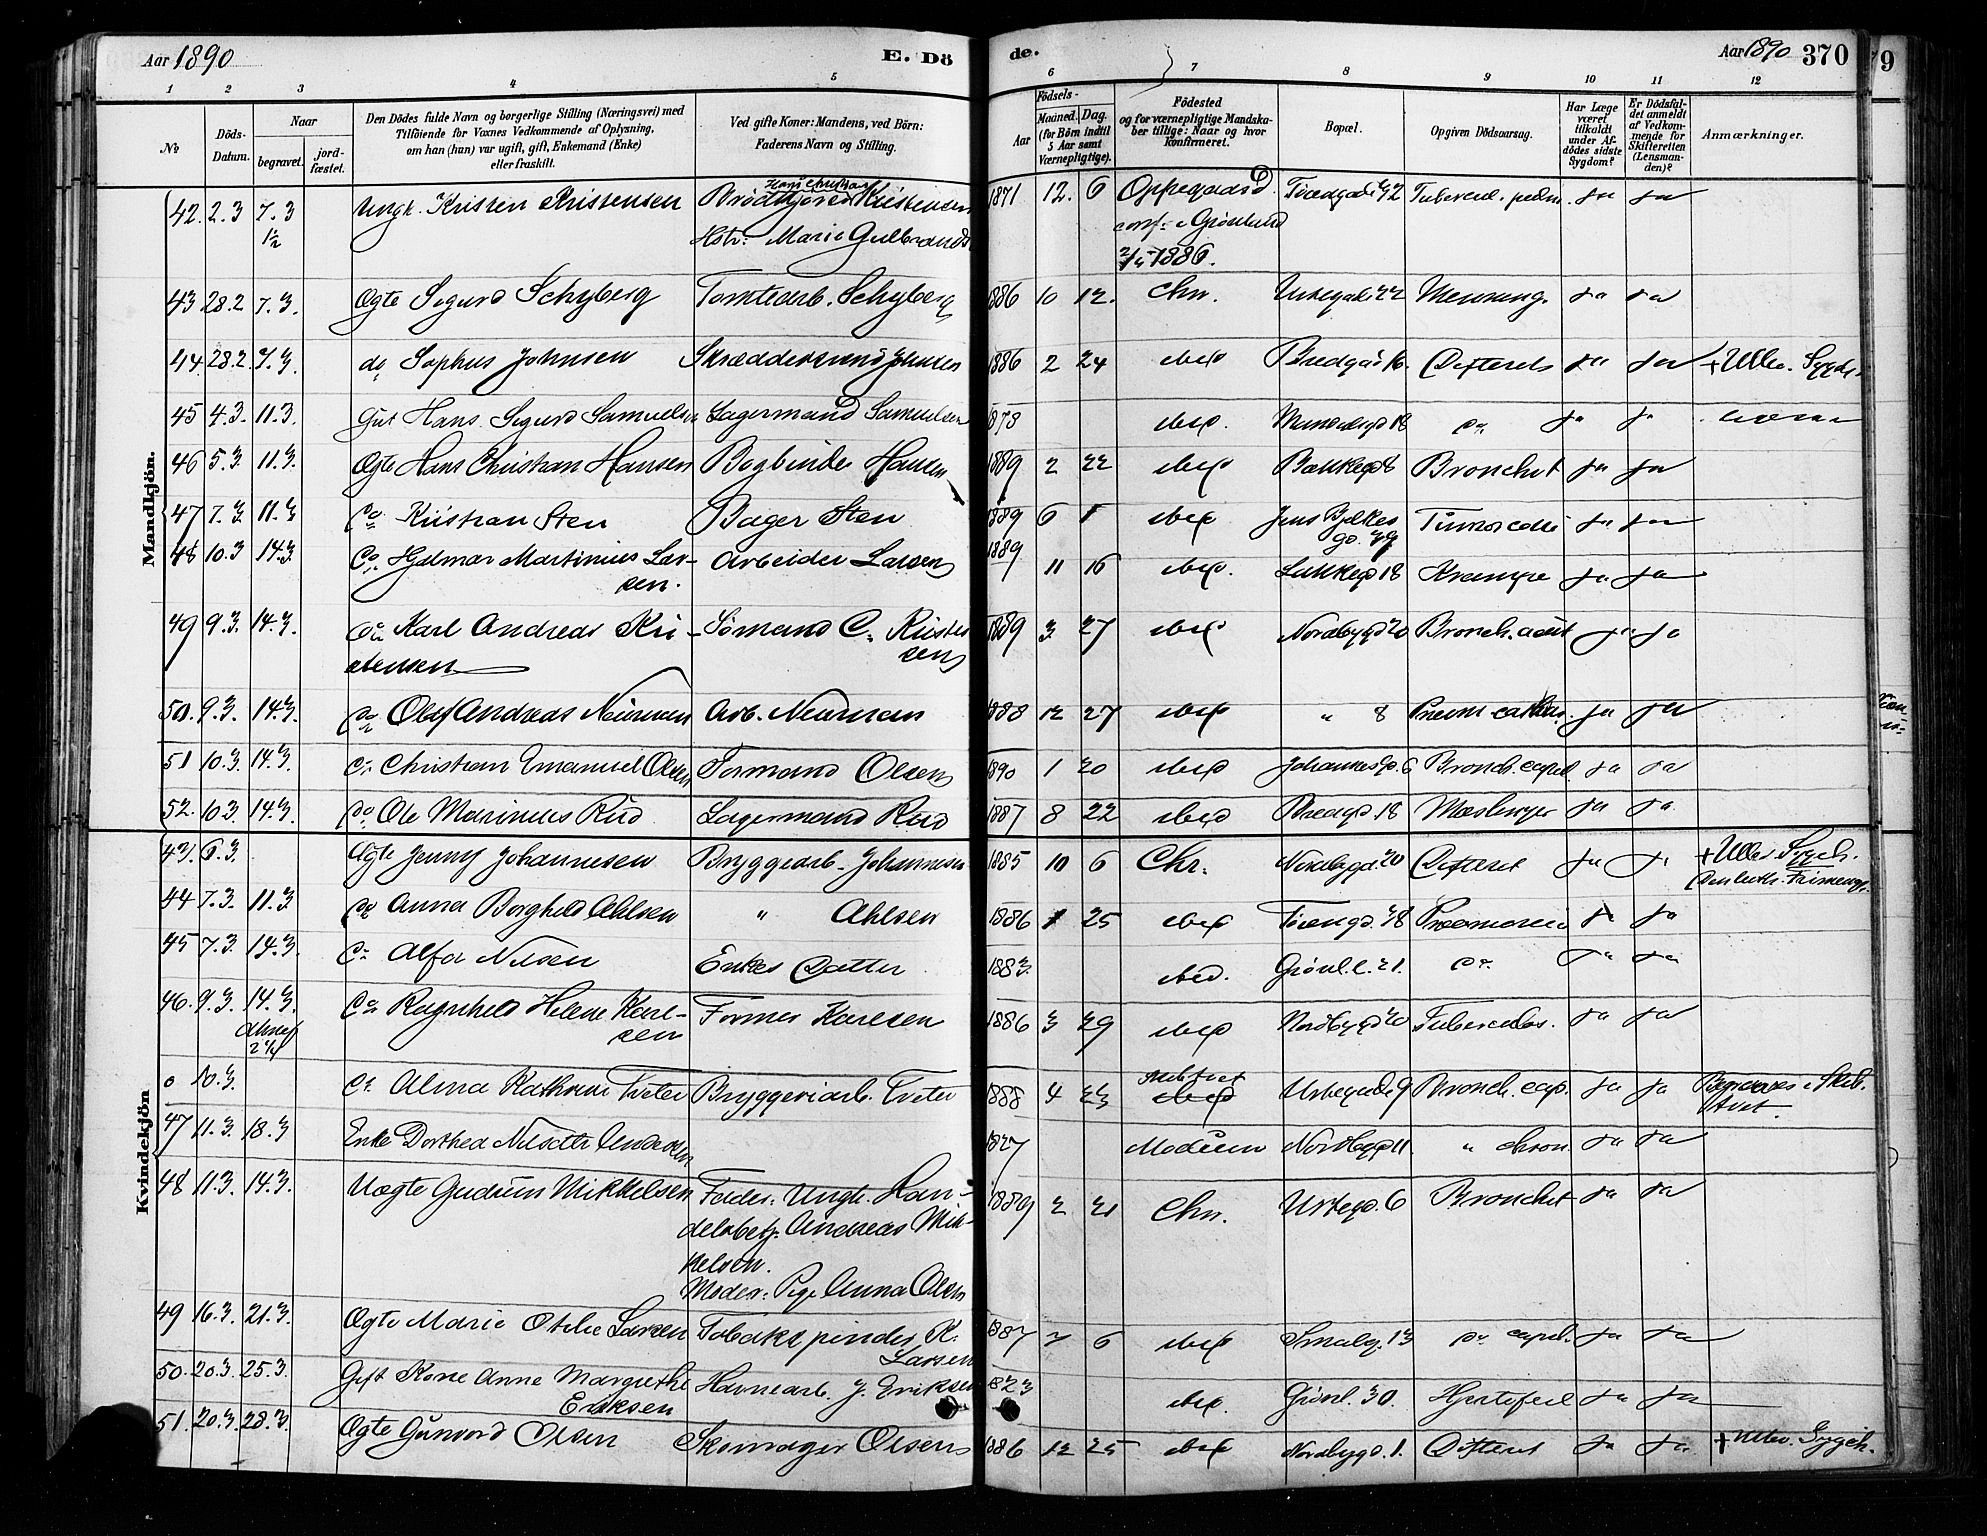 Aar 1890
E. Dö
de.
Aar 1890
370
1 2 3 4 5 6 7 8 9 10 11 12
No
Döds-Datum.
Naar
begravet.
jord-fæstet.
Den Dödes fulde Navn og borgerlige Stilling (Næringsvei) med
Tilföiende for Voxnes Vedkommende af Oplysning,
om han (hun) var ugift, gift, Enkemand (Enke)
eller fraskilt.
Ved gifte Koner: Mandens, ved Börn:
Faderens Navn og Stilling.
Aar
Födsels-
Maaned. Dag.
(for Börn indtil
5 Aar samt
Værnepligtige).
Födested
og for værnepligtige Mandska-
ber tillige: Naar og hvor
konfirmeret.
Bopæl.
Opgiven Dödsaarsag.
Har Læge
været
tilkaldt
under Af-
dödes sidste
Sygdom?
Er Dödsfal-
det anmeldt
af Vedkom-
mende for
Skifteretten
(Lensman-
den)?
Anmærkninger.
Mandkjön.
42. 2.3 7.3 Ungk. Kristen Kristensen Brödkjörer Hans Christian Kristensen 1871 12. 6 Oppegaard. 42 Tubercul. pulm. ja ja
1/2 Hstr: Marie Gulbrands conf. i Grönland
1886.
43 28.2 7.3. Ægte Sigurd Schyberg Tomtearb. Schyberg 1886 10 12. Chr. Urtegad. 22 Mening. ja ja
44. 28.2. 7.3. do Sophus Johnsen Skræddersvend Johnsen 1886 2 24 ibid Bredgad 16. Difterit ja ja + Ullev. Sygeh.
45 4.3. 11.3. Gut Hans Sigurd Samuelsen Lagermand Samuelsen 1878 ibid. 18 do ja ja
46 5.3. 11.3. Ægte Hans Christian Hansen Bogbinder Hansen 1889 2 22 ibid Bakkegd 8 Bronchit ja ja
47 7.3 11.3 do Kristian Sten Bager Sten 1889 6 1 ibid Jens Bjelkes ja ja
gd. 79
48 10.3 14.3 do Hjalmar Martinius Lar- Arbeider Larsen 1889 11 16 ibid. Lakkegd 18 Krampe ja ja
sen.
49 9.3. 14.3. do Karl Andreas Kri- Sömand C. Kristen 1889 3 27 ibid Nordbygd 20 Bronch. acut ja ja
stensen sen
50. 9.3. 14.3. do Olaf Andreas Neuman Arb. Neuman 1888 12 27 ibid " 8 Pneum. ja ja
51 10.3. 14.3. do Christian Emanuel Olsen Formand Olsen 1890 1 20 ibid Johannesgd. 6 Bronch. capil ja ja
52. 10.3. 14.3. do Ole Marinius Rud Lagermand Rud 1887 8 22 ibid Bredgd 18 Mæslinger ja ja
Kvindekjön
43. 6.3. Ægte Jenny Johannesen Bryggearb. Johannesen 1885 10 6 Chr. Nordbygd. 20 Difterit ja ja + Ullev. Sygeh.
Den luth. Frimenigh.
44 7.3. 11.3 do Anna Borghild Ahlsen " Ahlsen 1886 1 25 ibid 38 Pneumoni ja ja
45 7.3. 14.3. do Alfa Nilsen Enkes Datter 1883. ibid. Grönl. l. 21. do ja ja
46. 9.3. 14.3. do Ragnhild Helene Karl- Former Karlsen 1886 3 29 ibid Nordbygd 20 Tuberculos. ja ja
sen
0 10.3. do Alma Kathrine Tveter Bryggeriarb. Tveter 1888 4 23 Skibtvet Urtegad. 9 Bronch. cap. ja ja Begraves i Skib-
tvet.
47 11.3. 18.3 Enke Dorthea Andersen 1827 Modum Nordbygd 11. " chron. ja ja
48 11.3. 14.3. Uægte Gudrun Mikkelsen Fader: Ungk. Han- 1889 2 21 Chr. Urtegd. 6 Bronchit ja ja
delsbetj. Andreas Mik-
kelsen.
Moder: Pige Anna Olsen
49 16.3. 21.3. Ægte Marie Otilie Larsen Tobakspinder K. 1887 7 6 ibid Smalg. 13 do capil. ja ja
Larsen
50. 20.3. 25.3. Gift Kone Anne Margrethe Havnearb. J. Eriksen 1823 ibid. Grönl. 30. Hjertefeil ja ja
Eriksen
51. 20.3. 28.3. Ægte Gunvord Olsen Skomager Olsen 1886 12 25 ibid Nordbygd. 1. Difterit ja ja + Ullev. Sygeh.